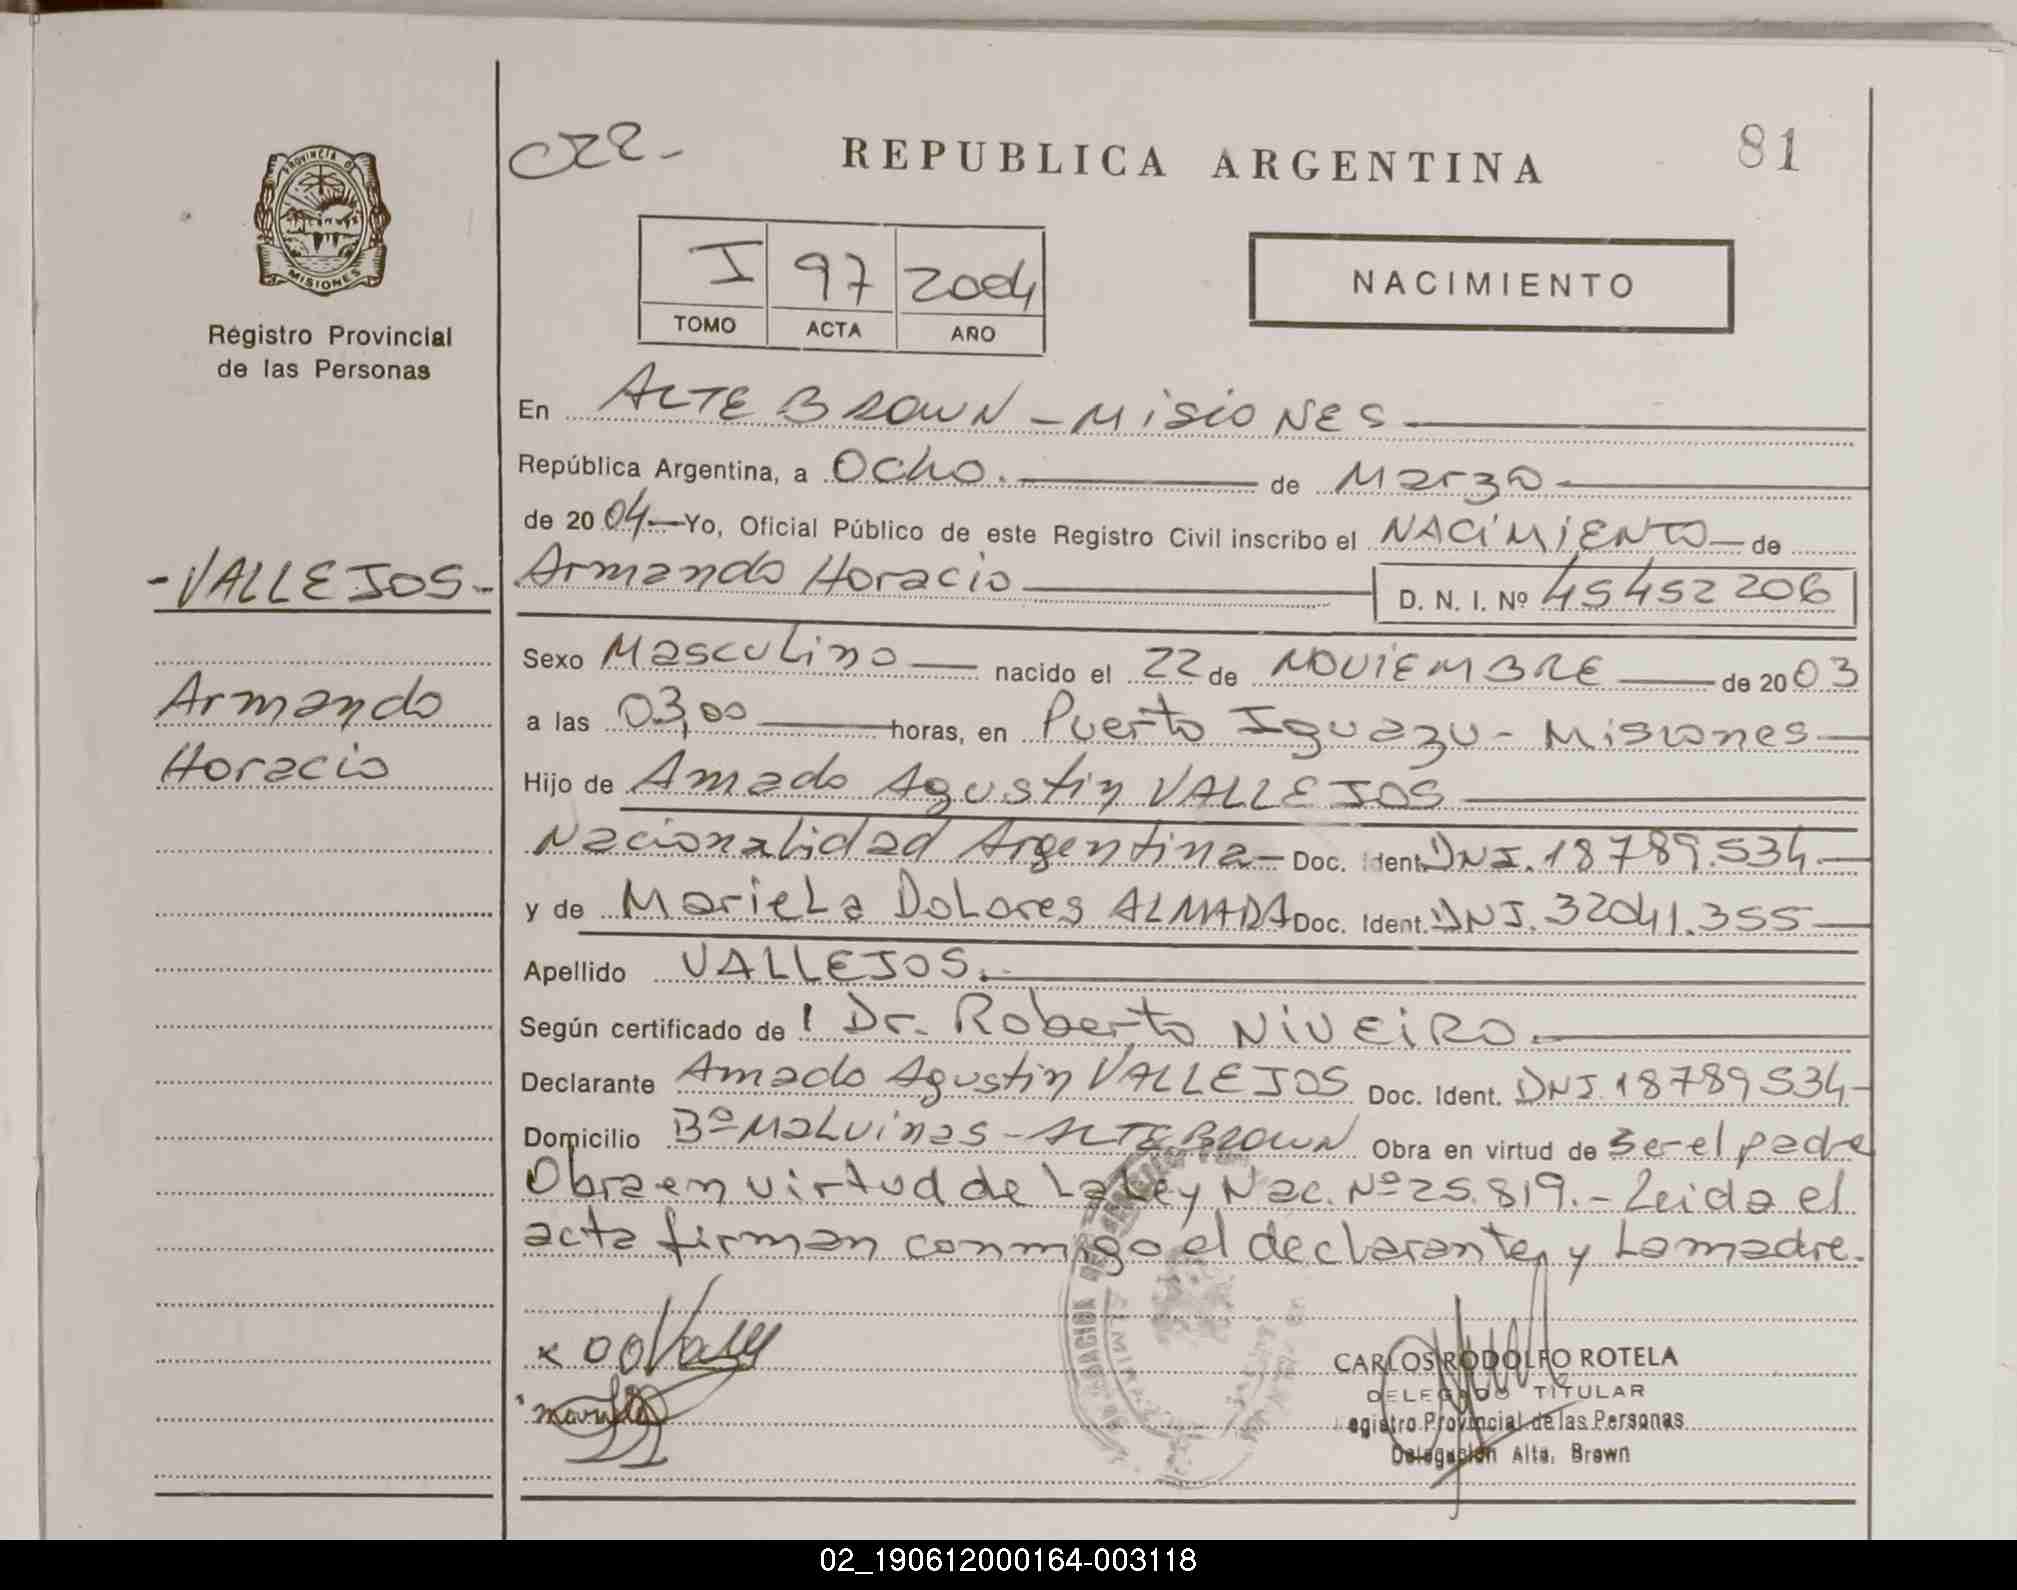 PROVINCIA DE
MISIONES
Registro Provincial
de las Personas
-VALLEJOS-
Armando
Horacio
REPUBLICA ARGENTINA
81
I 97 2004
TOMO ACTA AÑO
NACIMIENTO
En ALTE BROWN - MISIONES
República Argentina, a Ocho. de Marzo
de 2004 Yo, Oficial Público de este Registro Civil inscribo el NACIMIENTO de
Armando Horacio D. N. I. Nº 45452206
Sexo Masculino nacido el 22 de NOVIEMBRE de 2003
a las 03,00 horas, en Puerto Iguazu - Misiones
Hijo de Amado Agustin VALLEJOS
Nacionalidad Argentina - Doc. Ident. DNI. 18789.534
y de Mariela Dolores ALMADA Doc. Ident. DNI. 32041.355
Apellido VALLEJOS.
Según certificado de l Dr. Roberto NIVEIRO.
Declarante Amado Agustin VALLEJOS Doc. Ident. DNI. 18789534
Domicilio Bº Malvinas - ALTE BROWN Obra en virtud de ser el padre
Obra en virtud de La Ley Nac. Nº 25.819. - Leida el
acta firman conmigo el declarante y La madre.
CARLOS RODOLFO ROTELA
DELEGADO TITULAR
egistro Provincial de las Personas
Delegación Alte. Brown
02_190612000164-003118